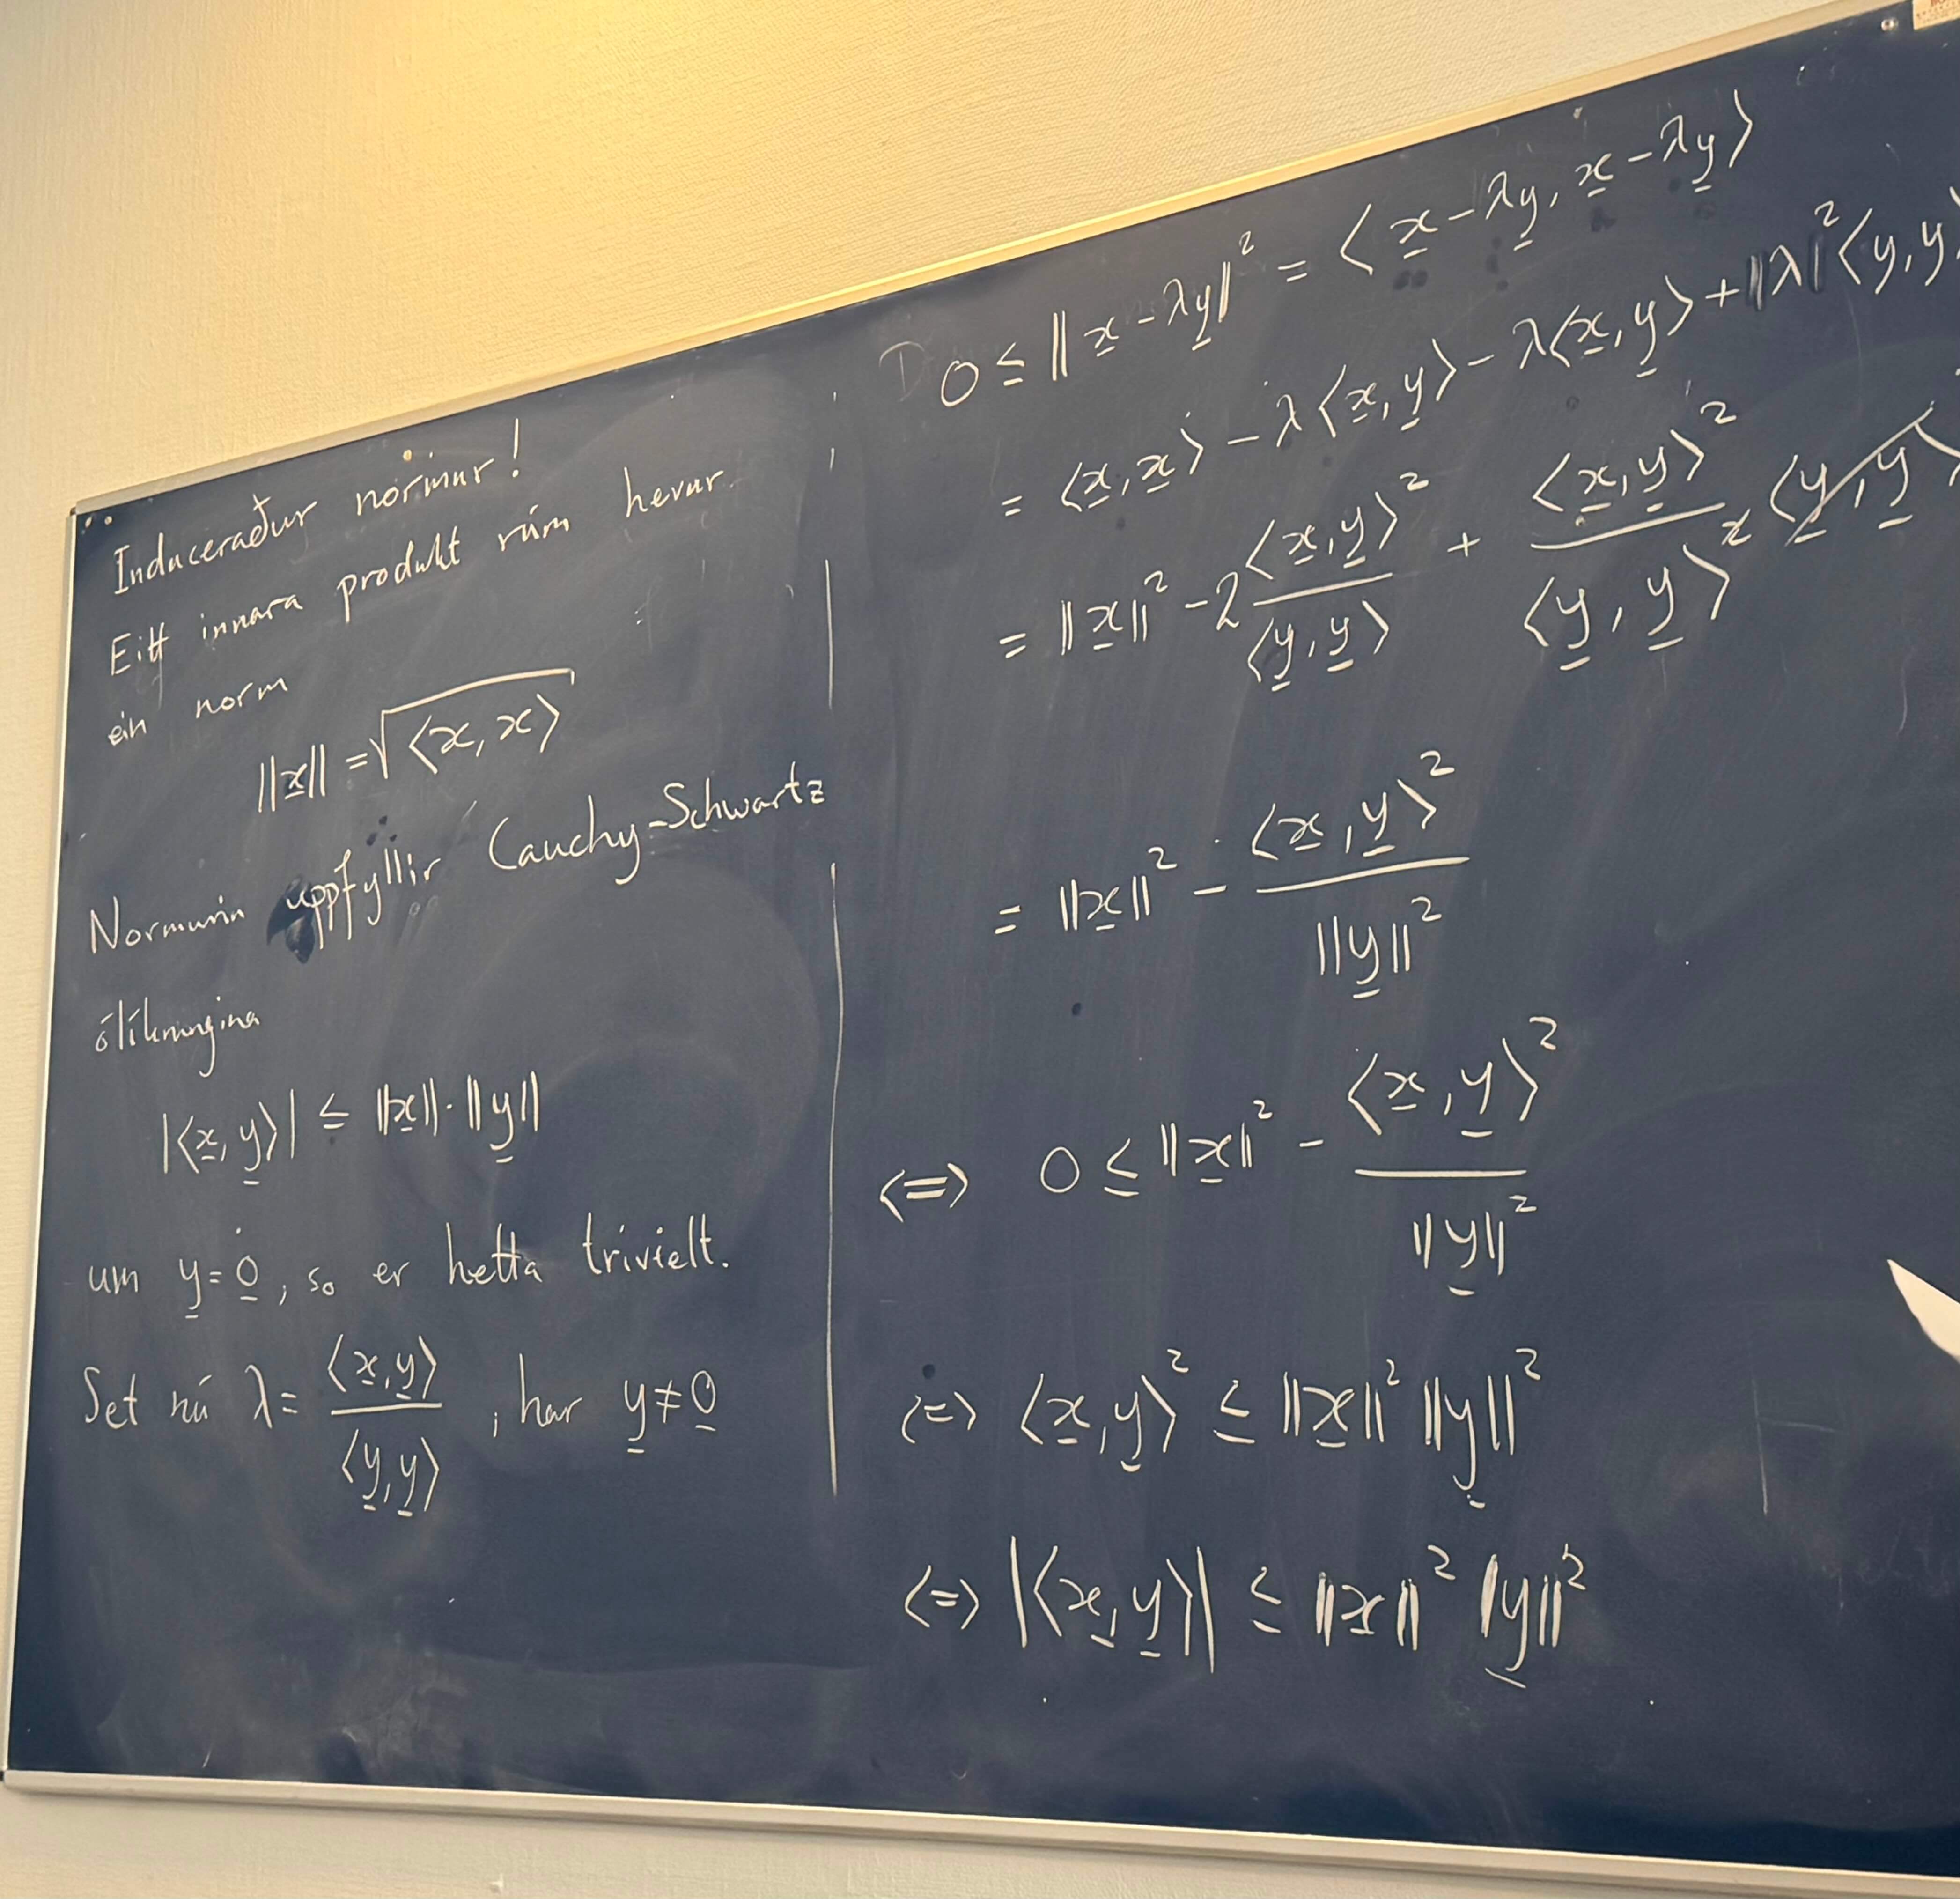 Induceraður normur!
Eitt innara produkt rúm hevur
ein norm
||x̲|| = √⟨x, x⟩
Normurin uppfyllir Cauchy-Schwartz
ólíkningina
|⟨x̲, y̲⟩| ≤ ||x̲|| · ||y̲||
um y̲ = 0̲, so er hetta trivielt.
Set nú λ = ⟨x̲, y̲⟩ / ⟨y̲, y̲⟩, har y̲ ≠ 0̲
0 ≤ ||x̲ - λy̲||² = ⟨x̲ - λy̲, x̲ - λy̲⟩
= ⟨x̲, x̲⟩ - λ⟨x̲, y̲⟩ - λ⟨x̲, y̲⟩ + |λ|²⟨y, y
= ||x̲||² - 2 ⟨x̲, y̲⟩² / ⟨y̲, y̲⟩ + ⟨x̲, y̲⟩² / ⟨y̲, y̲⟩² ⟨y̲, y̲⟩
= ||x̲||² - ⟨x̲, y̲⟩² / ||y̲||²
⟨=⟩ 0 ≤ ||x̲||² - ⟨x̲, y̲⟩² / ||y̲||²
⟨=⟩ ⟨x̲, y̲⟩² ≤ ||x̲||² ||y̲||²
⟨=⟩ |⟨x̲, y̲⟩| ≤ ||x̲||² ||y̲||²